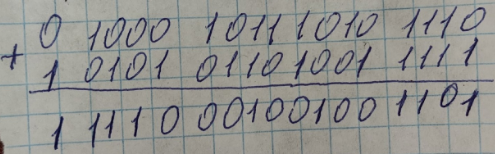 0 1000 1011 1010 1110
+
1 0101 0110 1001 1111
1 1110 0010 0100 1101